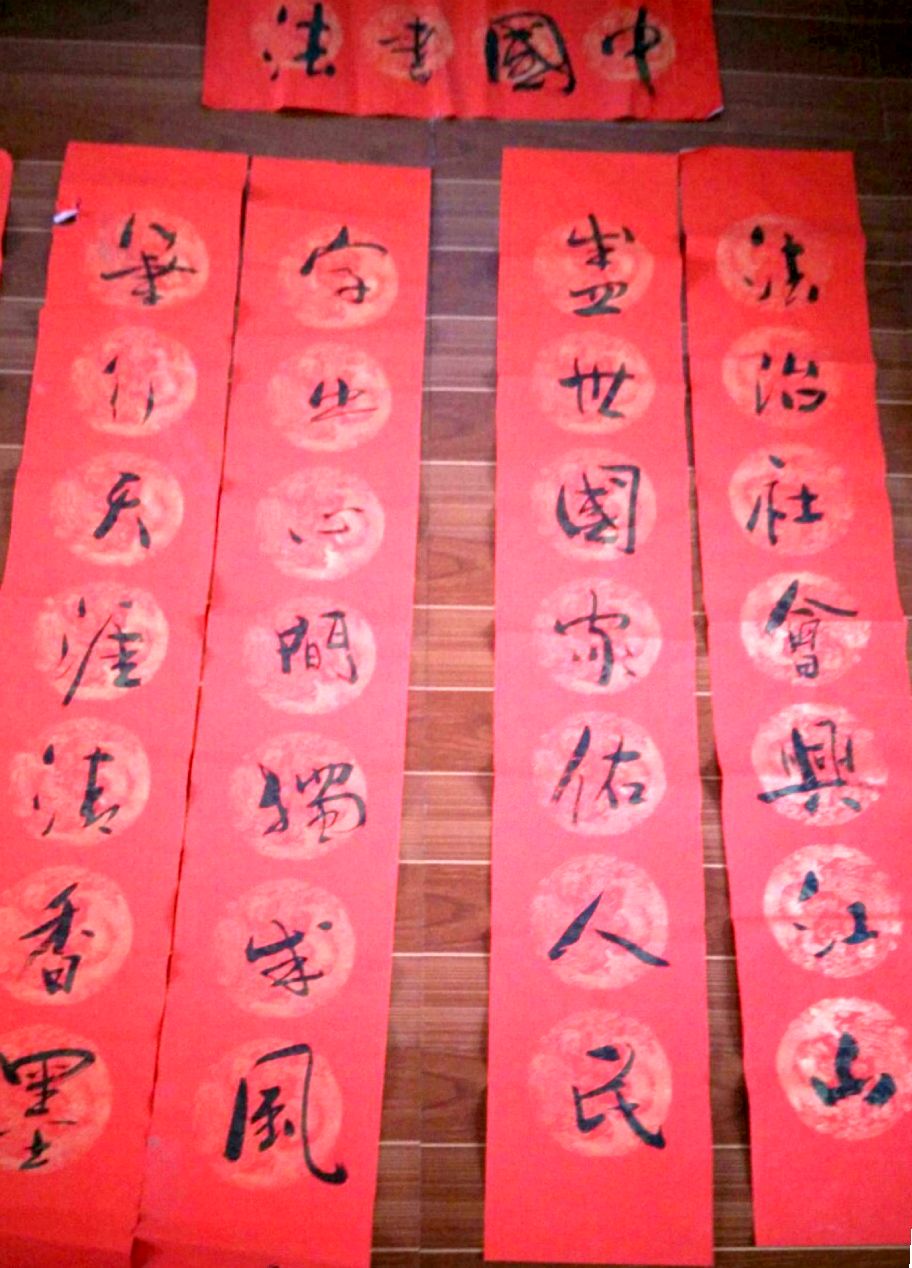 中國書法
法治社會興江山
盛世國家佑人民
字出心間獨成風
筆行天涯清香墨